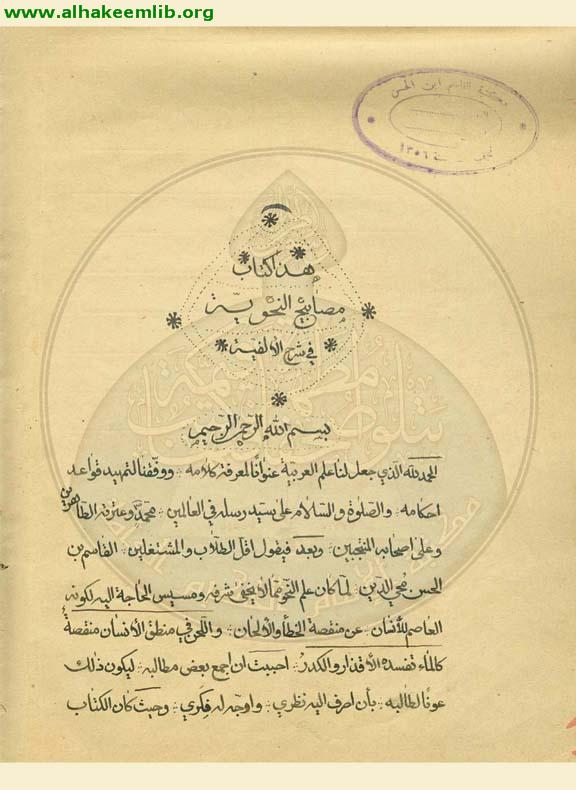 www.alhakeemlib.org
مكتبة القاسم ابن الحسن
١٣٥٦
هذا كتاب
مصابيح النحوية
في شرح الألفية
بسم الله الرحمن الرحيم
الحمد لله الذي جعل لنا علم العربية عنوانا لمعرفة كلامه ووفقنا لتمهيد قواعد
احكامه والصلوة والسلام على سيد رسله في العالمين محمد وعترته الطاهرين
وعلى اصحابه المنتجبين وبعد فيقول اقل الطلاب والمشتغلين القاسم بن
الحسن محي الدين لما كان علم النحو مما لا يخفى شرفه ومسيس الحاجة اليه لكونه
العاصم للأنسان عن منقصة الخطأ والألحان واللحن في منطق الأنسان منقصة
كالماء تفسده الأقذار والكدر احببت ان اجمع بعض مطالبه ليكون ذلك
عونا لطالبه بأن اصرف اليه نظري واوجه له فكري وحيث كان الكتاب